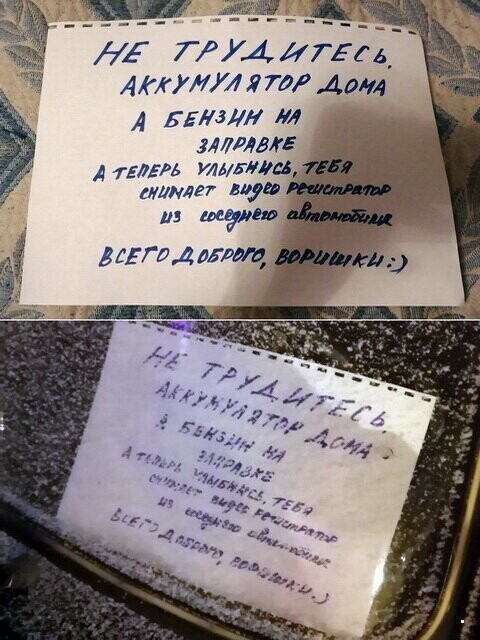 НЕ ТРУДИТЕСЬ,
АККУМУЛЯТОР ДОМА
А БЕНЗИН НА
ЗАПРАВКЕ
А ТЕПЕРЬ УЛЫБНИСЬ, ТЕБЯ
снимает видео регистратор
из соседнего автомобиля
ВСЕГО ДОБРОГО, ВОРИШКИ:)
НЕ ТРУДИТЕСЬ,
АККУМУЛЯТОР ДОМА
А БЕНЗИН НА
ЗАПРАВКЕ
А ТЕПЕРЬ УЛЫБНИСЬ, ТЕБЯ
снимает видео регистратор
из соседнего автомобиля
ВСЕГО ДОБРОГО, ВОРИШКИ:)